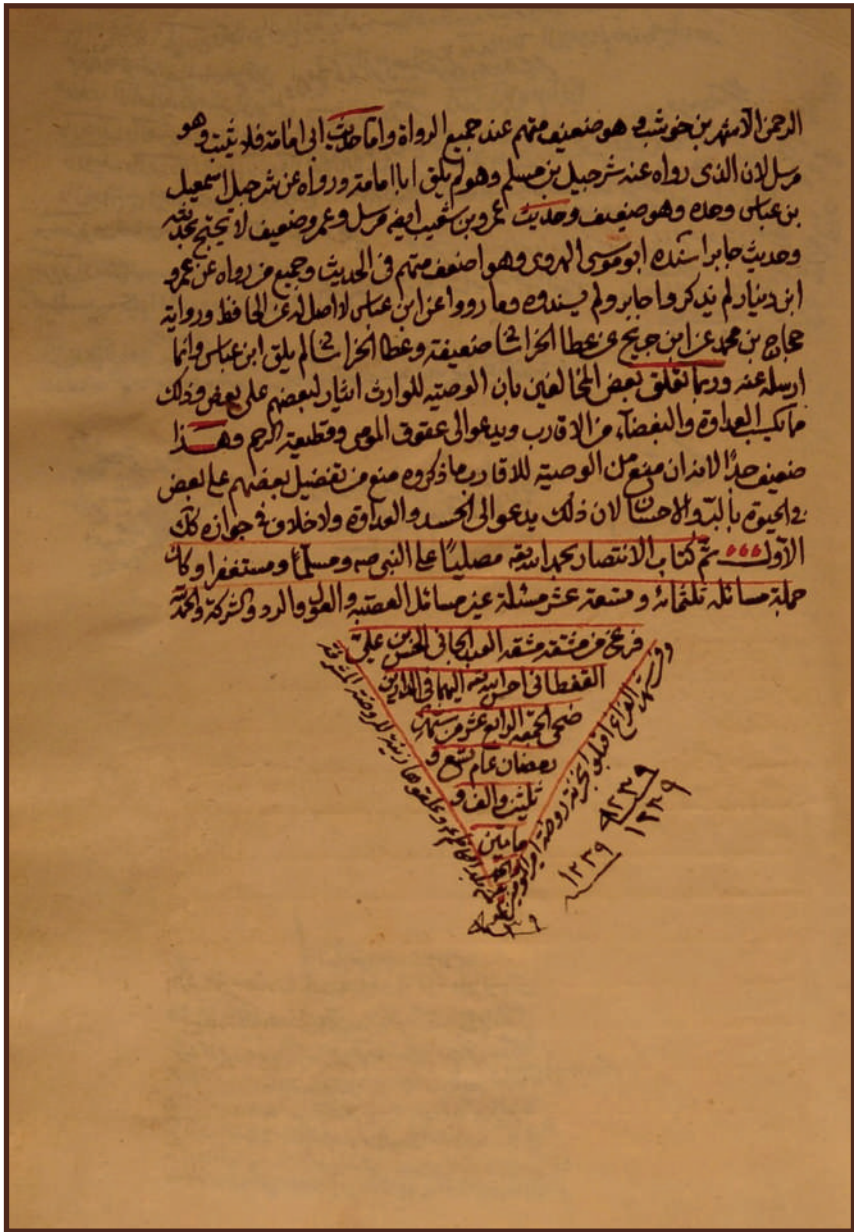 الرحمن الا شهر بن حوشب وهو ضعيف متهم عند جميع الرواة واما حديث ابي امامة فلا يثبت وهو
مرسل لان الذى رواه عنه شرجيل بن مسلم وهو لم يلق ابا امامة ورواه عن شرجيل اسمعيل
بن عباس وحده وهو ضعيف وحديث عمرو بن شعيب ايضه مرسل وعمرو ضعيف لا يحتج بحديثه
وحديث جابر اسنده ابو موسى الهروى وهو اضعف متهم فى الحديث وجميع من رواه عن عمرو
ابن دينار لم يذكروا جابر ولم يسندوه وما رووا عن ابن عباس لا اصل له عن الحافظ ورواية
حجاج بن محمد عن ابن جريح عن عطا الخراسانى ضعيفة وعطا الخراسانى لم يلق ابن عباس وانما
ارسله عنه وربما تعلق بعض المخالفين بان الوصية للوارث ايثار لبعضهم على بعض وذلك
مما يكسب العداوة والبغضآء من الاقارب ويدعوالى عقوق الموصى وقطيعة الرحم وهذا
ضعيف جدًا لانه ان منع من الوصية للاقارب ما ذكروه منع من تفضيل بعضهم على بعض
فى الحيوة بالبر والاحسان لان ذلك يدعوالى الحسد والعداوة ولاخلاف فى جوازه وكك
الاول تم كتاب الانتصار بحمد الله مصليًا على النبى صه ومسلمًا ومستغفرا وكان
جملة مسائله ثلثمائة وتسعة عشر مسئلة غير مسائل العصبة والعول والرد والشركة والحمد لله
فرغ من مشقه مشقه العبد الجانى الحسن بن على
القفطانى احسن الله اليهما فى الدارين
ضحى الجمعة الرابع عشر من شهر
رمضان عام تسع و
ثلثين والف و
مايتين
١٢٣٩
١٢٣٩
١٢٣٩
١٢٣٩